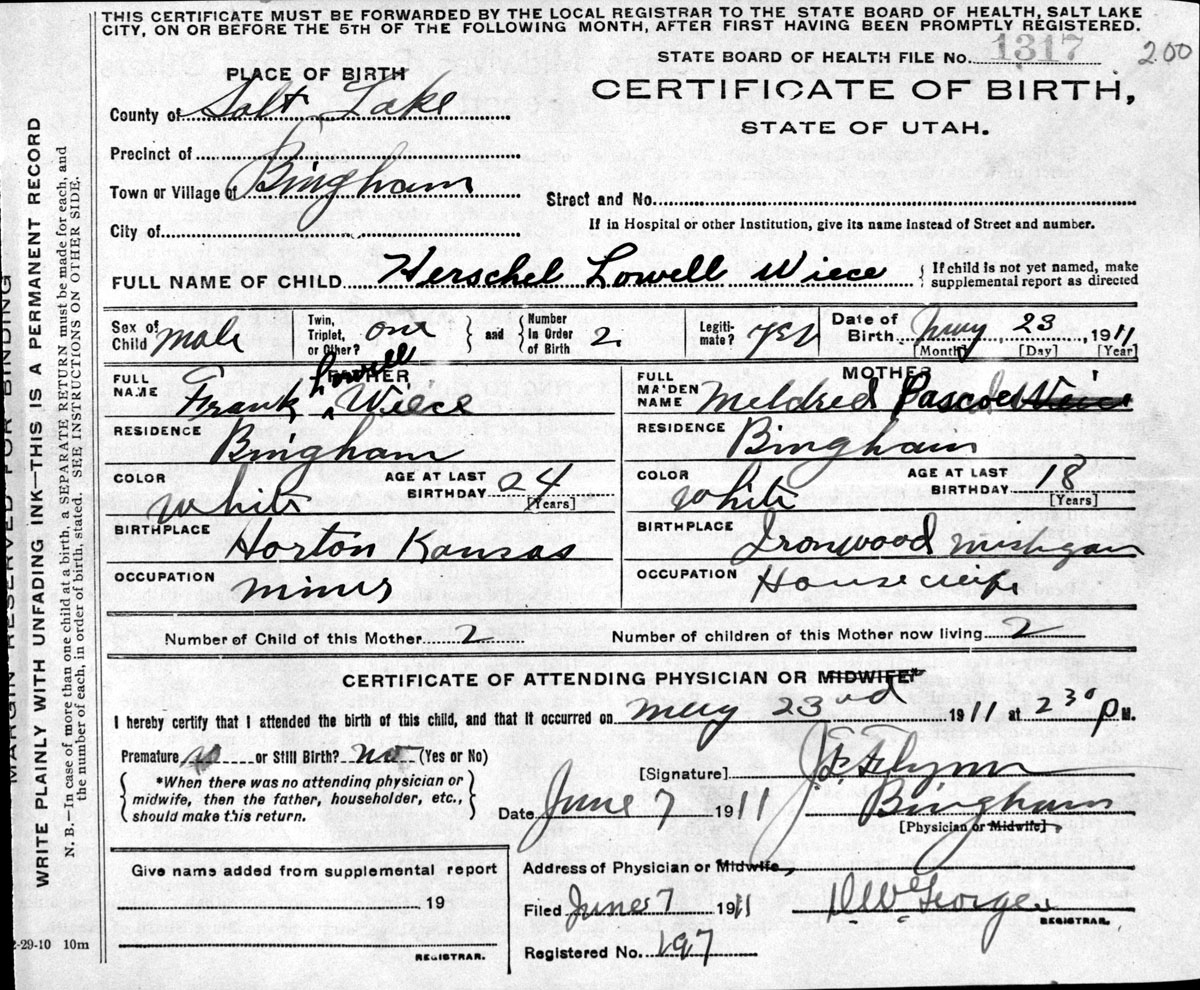 THIS CERTIFICATE MUST BE FORWARDED BY THE LOCAL REGISTRAR TO THE STATE BOARD OF HEALTH, SALT LAKE
CITY, ON OR BEFORE THE 5TH OF THE FOLLOWING MONTH, AFTER FIRST HAVING BEEN PROMPTLY REGISTERED.
STATE BOARD OF HEALTH FILE No. 1317
200
PLACE OF BIRTH
CERTIFICATE OF BIRTH,
STATE OF UTAH.
County of Salt Lake
Precinct of
Town or Village of Bingham
Street and No.
City of
If in Hospital or other Institution, give its name instead of Street and number.
FULL NAME OF CHILD Herschel Lowell Wiece
{ If child is not yet named, make
supplemental report as directed
Sex of Child male
Twin, Triplet, or Other? one } and { Number in Order of Birth 2.
Legiti-mate? yes
Date of Birth May 23, 1911
[Month] [Day] [Year]
FATHER
FULL NAME Frank Lowell Wiece
RESIDENCE Bingham
COLOR White AGE AT LAST BIRTHDAY 24 [Years]
BIRTHPLACE Horton Kansas
OCCUPATION miner
MOTHER
FULL MAIDEN NAME Meldred Pascoe Wiece
RESIDENCE Bingham
COLOR White AGE AT LAST BIRTHDAY 18 [Years]
BIRTHPLACE Ironwood Mishigan
OCCUPATION Housewife
Number of Child of this Mother 2 Number of children of this Mother now living 2
CERTIFICATE OF ATTENDING PHYSICIAN OR MIDWIFE*
I hereby certify that I attended the birth of this child, and that it occurred on May 23rd 1911 at 230 P M.
Premature, no or Still Birth? no (Yes or No)
{ *When there was no attending physician or
midwife, then the father, householder, etc.,
should make this return. }
[Signature] J F Flynn
Date June 7 1911 Bingham
[Physician or Midwife]
Address of Physician or Midwife,
Give name added from supplemental report
19
REGISTRAR.
Filed June 7 1911 D W George
REGISTRAR.
Registered No. 197
2-29-10 10m
MARGIN RESERVED FOR BINDING
WRITE PLAINLY WITH UNFADING INK—THIS IS A PERMANENT RECORD
N. B.—In case of more than one child at a birth, a SEPARATE RETURN must be made for each, and
the number of each, in order of birth, stated. SEE INSTRUCTIONS ON OTHER SIDE.